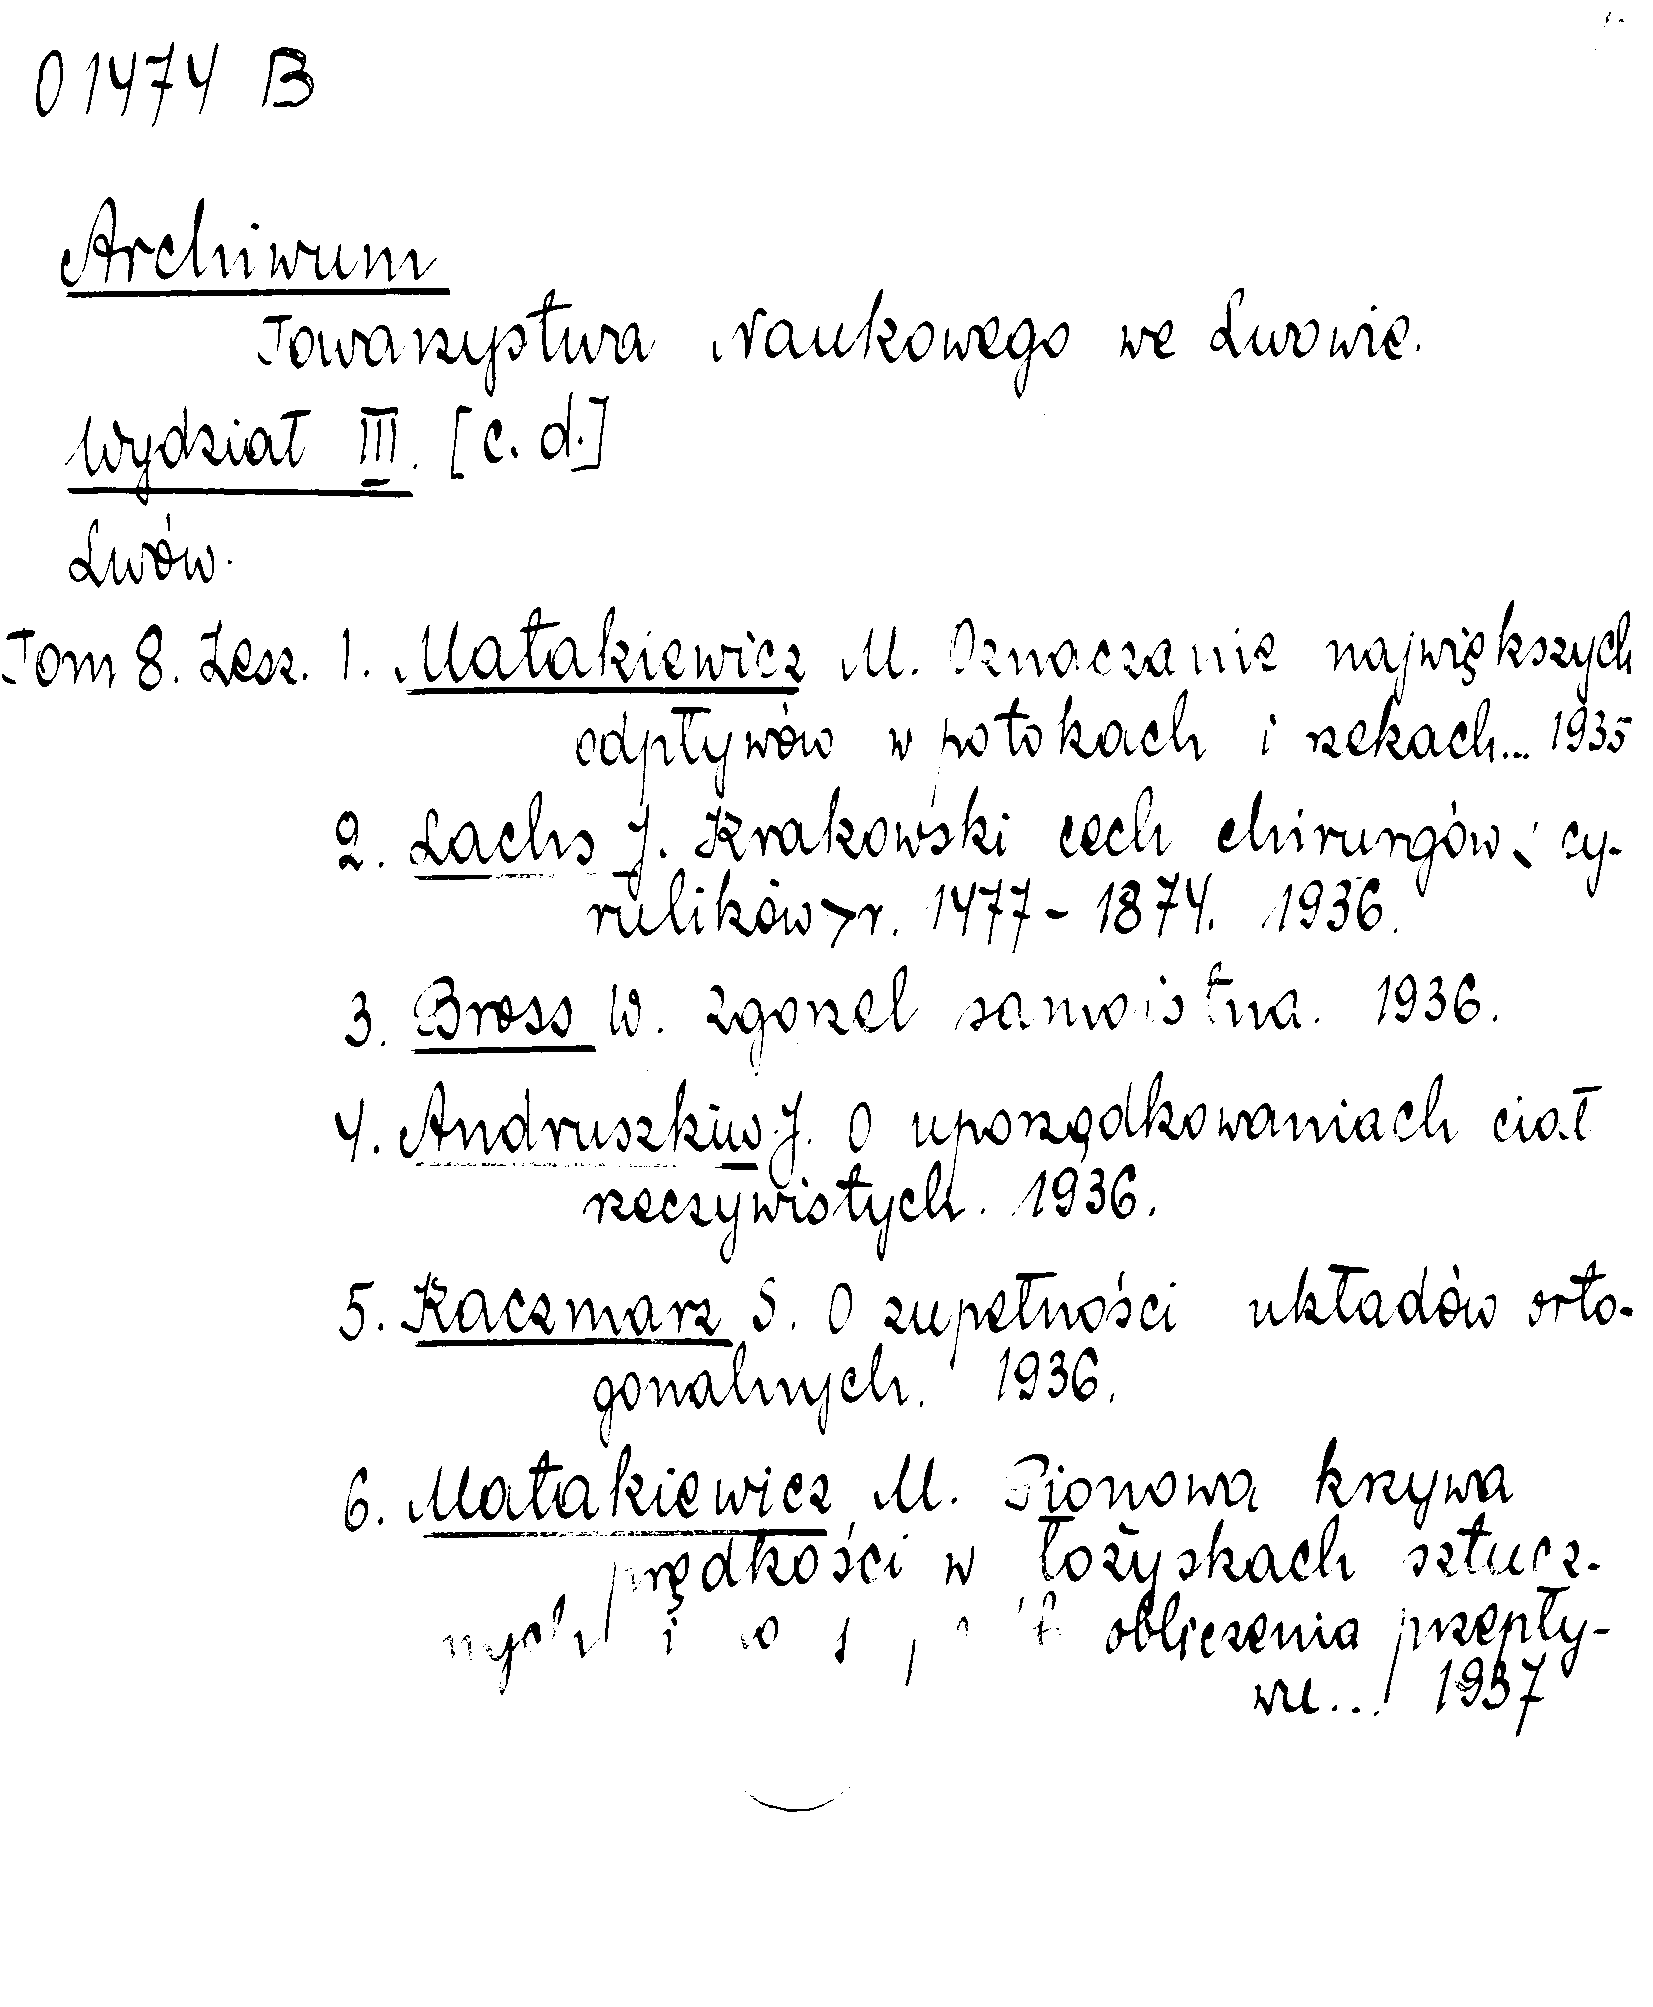 01474 B
Archiwum
Towarzystwa Naukowego we Lwowie.
Wydział III. [c. d.]
Lwów.
Tom 8. Zesz. 1. Matakiewicz M. Oznaczanie największych
odpływów w potokach i rzekach... 1935
2. Lachs J. Krakowski cech chirurgów i cy-
rulików r. 1477 - 1874. 1936.
3. Bross W. Zgorzel samoistna. 1936.
4. Andruszkiw J. O uporządkowaniach ciał
rzeczywistych. 1936.
5. Kaczmarz S. O zupełności układów orto-
gonalnych. 1936.
6. Matakiewicz M. Pionowa krzywa
prędkości w łożyskach sztucz-
nych i obliczenia przepły-
wu... 1937